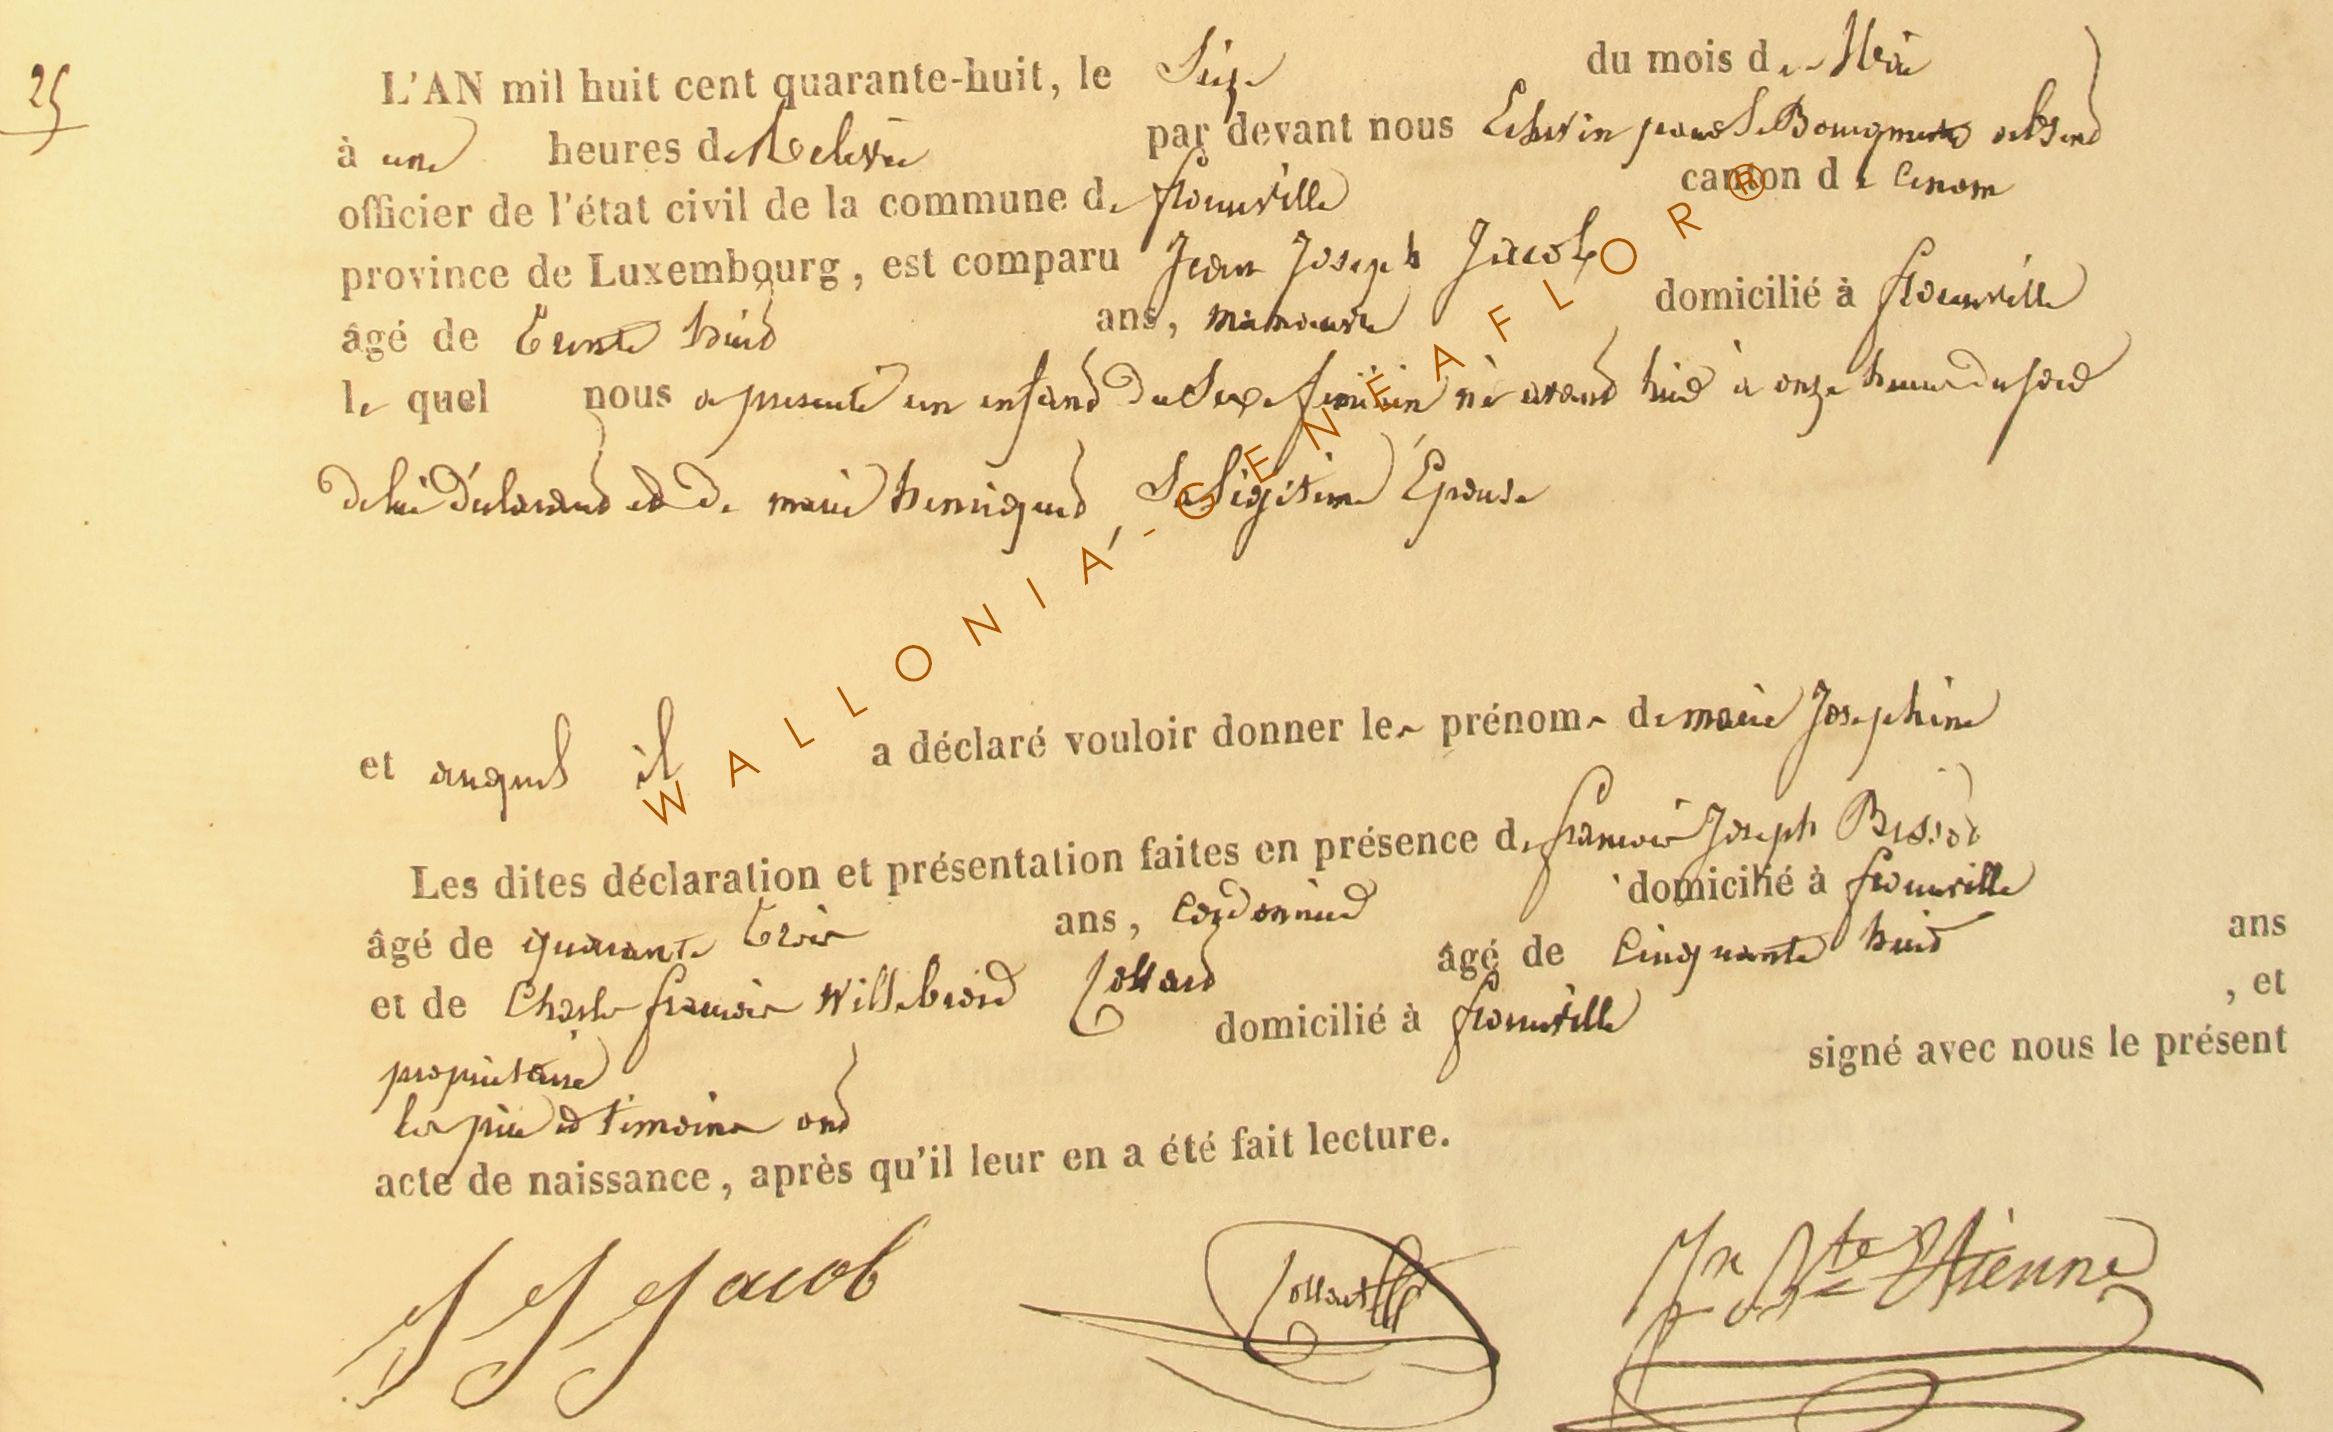 25
L'AN mil huit cent quarante-huit, le Seize du mois de Mai
à une heures de Relevée par devant nous Echevin pour le Bourgmestre absent
officier de l'état civil de la commune de florenville canton d e idem
province de Luxembourg, est comparu Jean Joseph Jacob
âgé de trente huit ans, manoeuvre domicilié à florenville
le quel nous a presenté un enfant du Sexe feminin né avant hier à onze heures du soir
de lui déclarant et de marie henriquet, Sa Légitime Épouse
et auquel il a déclaré vouloir donner les prénoms de marie Josephine
Les dites déclaration et présentation faites en présence de francois Joseph Bissot
âgé de quarante trois ans, Cordonnier domicilié à florenville
et de Charles francois Willebrord Collard âgé de Cinquante huit ans
propriétaire domicilié à florenville , et
les père et témoins ont signé avec nous le présent
acte de naissance, après qu'il leur en a été fait lecture.
J J Jacob Collard Jn Bte Etienne
WALLONIA-GENEAFLOR®